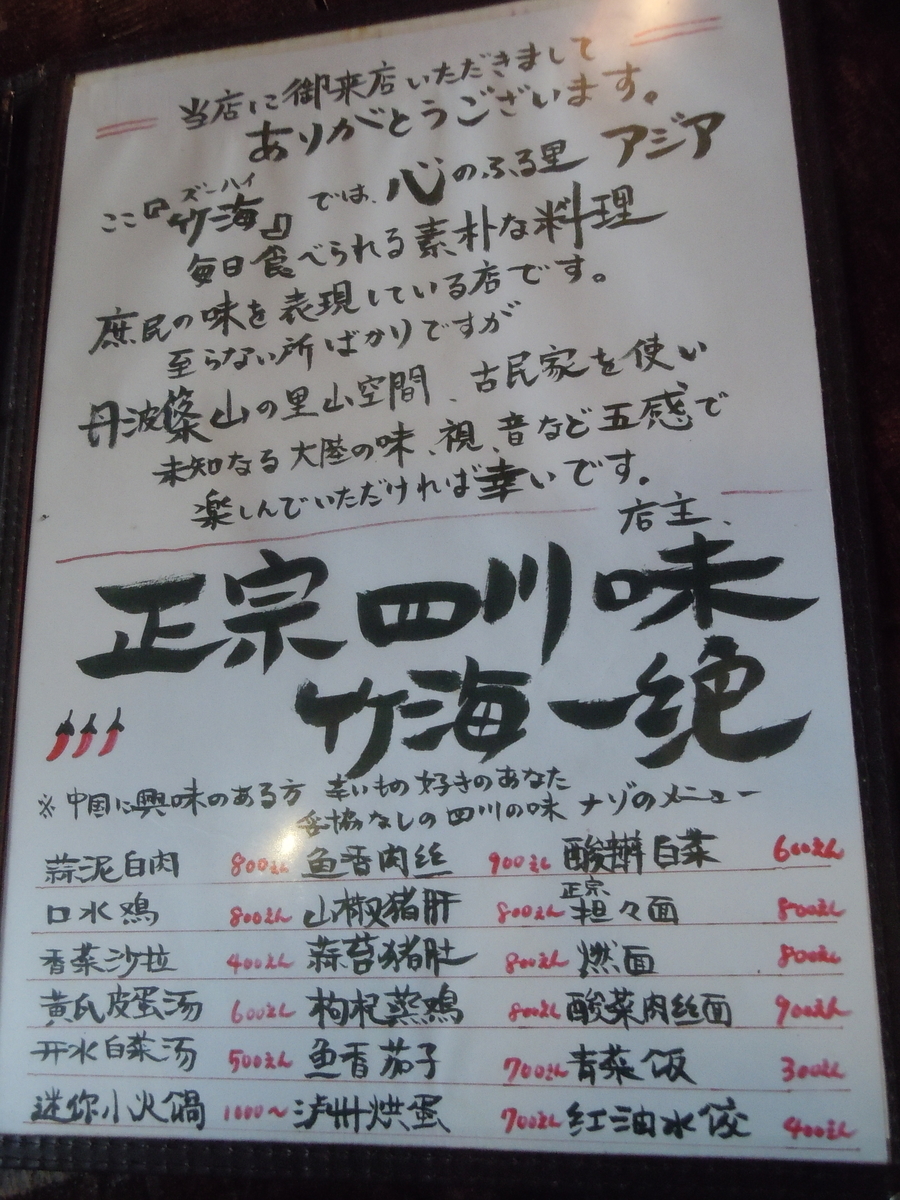 当店に御来店いただきまして
ありがとうございます。
ズーハイ
ここ『竹海』では、心のふる里 アジア
毎日食べられる素朴な料理
庶民の味を表現している店です。
至らない所ばかりですが
丹波篠山の里山空間、古民家を使い
未知なる大陸の味、視、音など五感で
楽しんでいただければ幸いです。
店主、
正宗四川味
竹海一绝
※中国に興味のある方 辛いもの好きのあなた
妥協なしの四川の味 ナゾのメニュー
蒜泥白肉 800えん 鱼香肉丝 900えん 酸辣白菜 600えん
口水鶏 800えん 山椒猪肝 800えん 正宗担々面 800えん
香菜沙拉 400えん 蒜苔猪肚 800えん 燃面 800えん
黄瓜皮蛋汤 600えん 枸杞蒸鶏 800えん 酸菜肉丝面 900えん
开水白菜汤 500えん 鱼香茄子 700えん 青菜饭 300えん
迷你小火锅 1000〜 泸州烘蛋 700えん 红油水饺 400えん